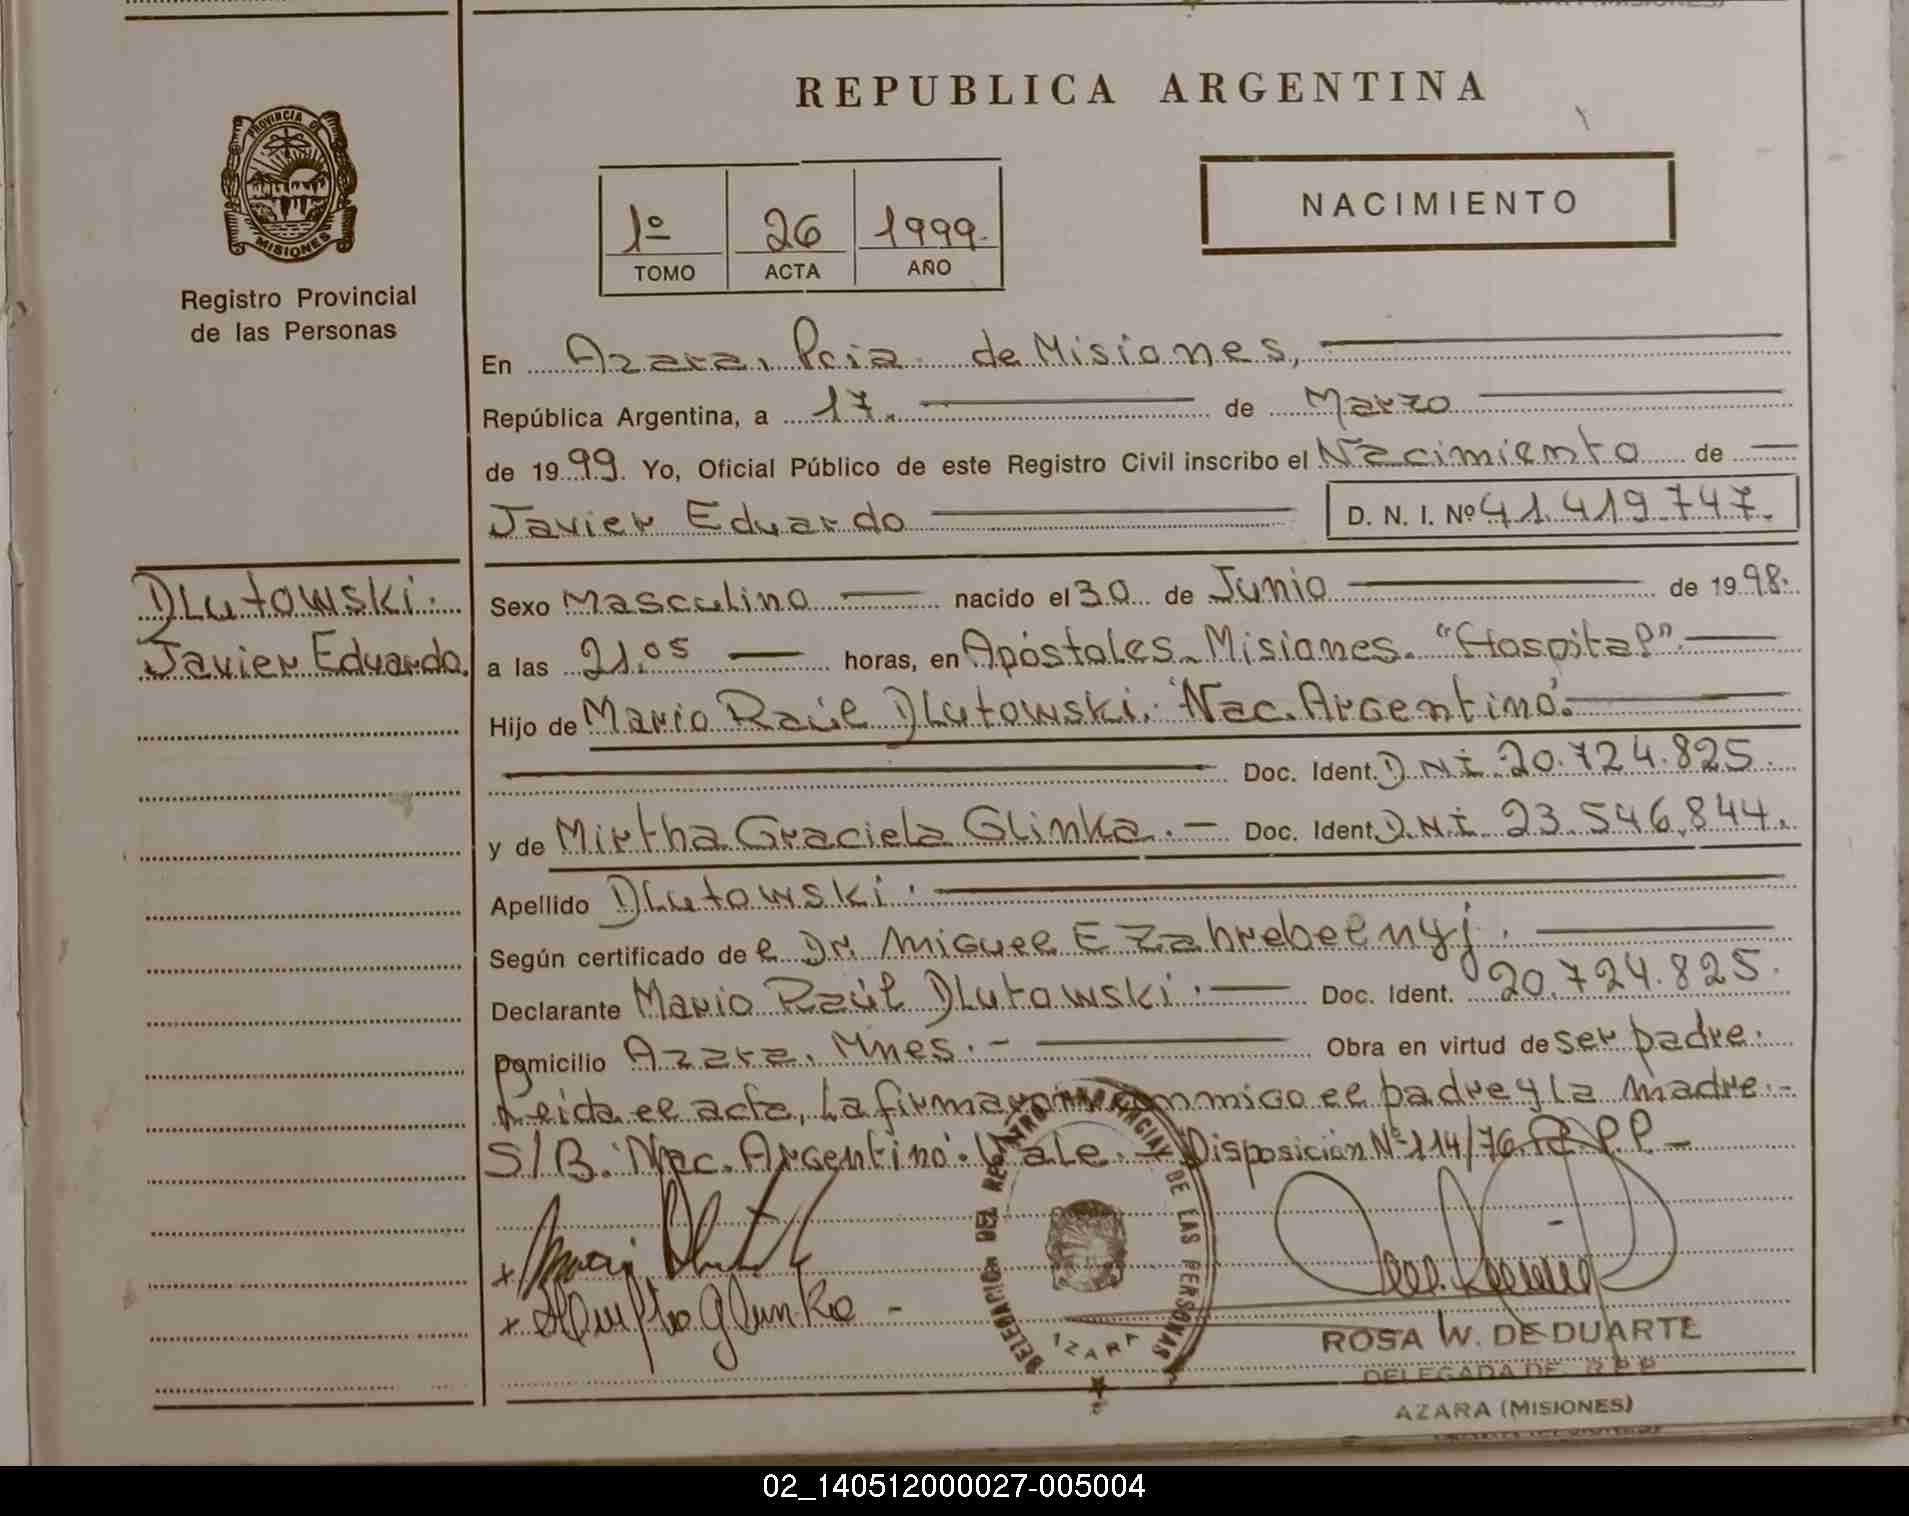 REPUBLICA ARGENTINA
PROVINCIA DE
MISIONES
Registro Provincial
de las Personas
NACIMIENTO
1º 26 1999.
TOMO ACTA AÑO
En Azara, Pcia. de Misiones,
República Argentina, a 17. de Marzo
de 1999. Yo, Oficial Público de este Registro Civil inscribo el Nacimiento de
Javier Eduardo D. N. I. Nº 41.419.747.
Dlutowski.
Javier Eduardo.
Sexo Masculino nacido el 30 de Junio de 1998.
a las 21.05 horas, en Apóstoles. Misiones. "Hospital".
Hijo de Mario Raúl Dlutowski. "Nac. Argentino".
Doc. Ident. DNI 20.724.825.
y de Mirtha Graciela Glinka. Doc. Ident. D.N.I. 23.546.844.
Apellido Dlutowski.
Según certificado de l Dr. Miguel E
Declarante Mario Raúl Dlutowski. Doc. Ident. 20.724.825.
Domicilio Azara, Mnes. Obra en virtud de ser padre.
Leida el acta, la firmaron conmigo el padre y la madre.-
S/B. "Nac. Argentino". Vale. Disposición Nº 114/76 R.P.P.
DELEGACION DEL REGISTRO PROVINCIAL DE LAS PERSONAS
AZARA
Glinka
ROSA W. DE DUARTE
DELEGADA DE R.P.P
AZARA (MISIONES)
02_140512000027-005004